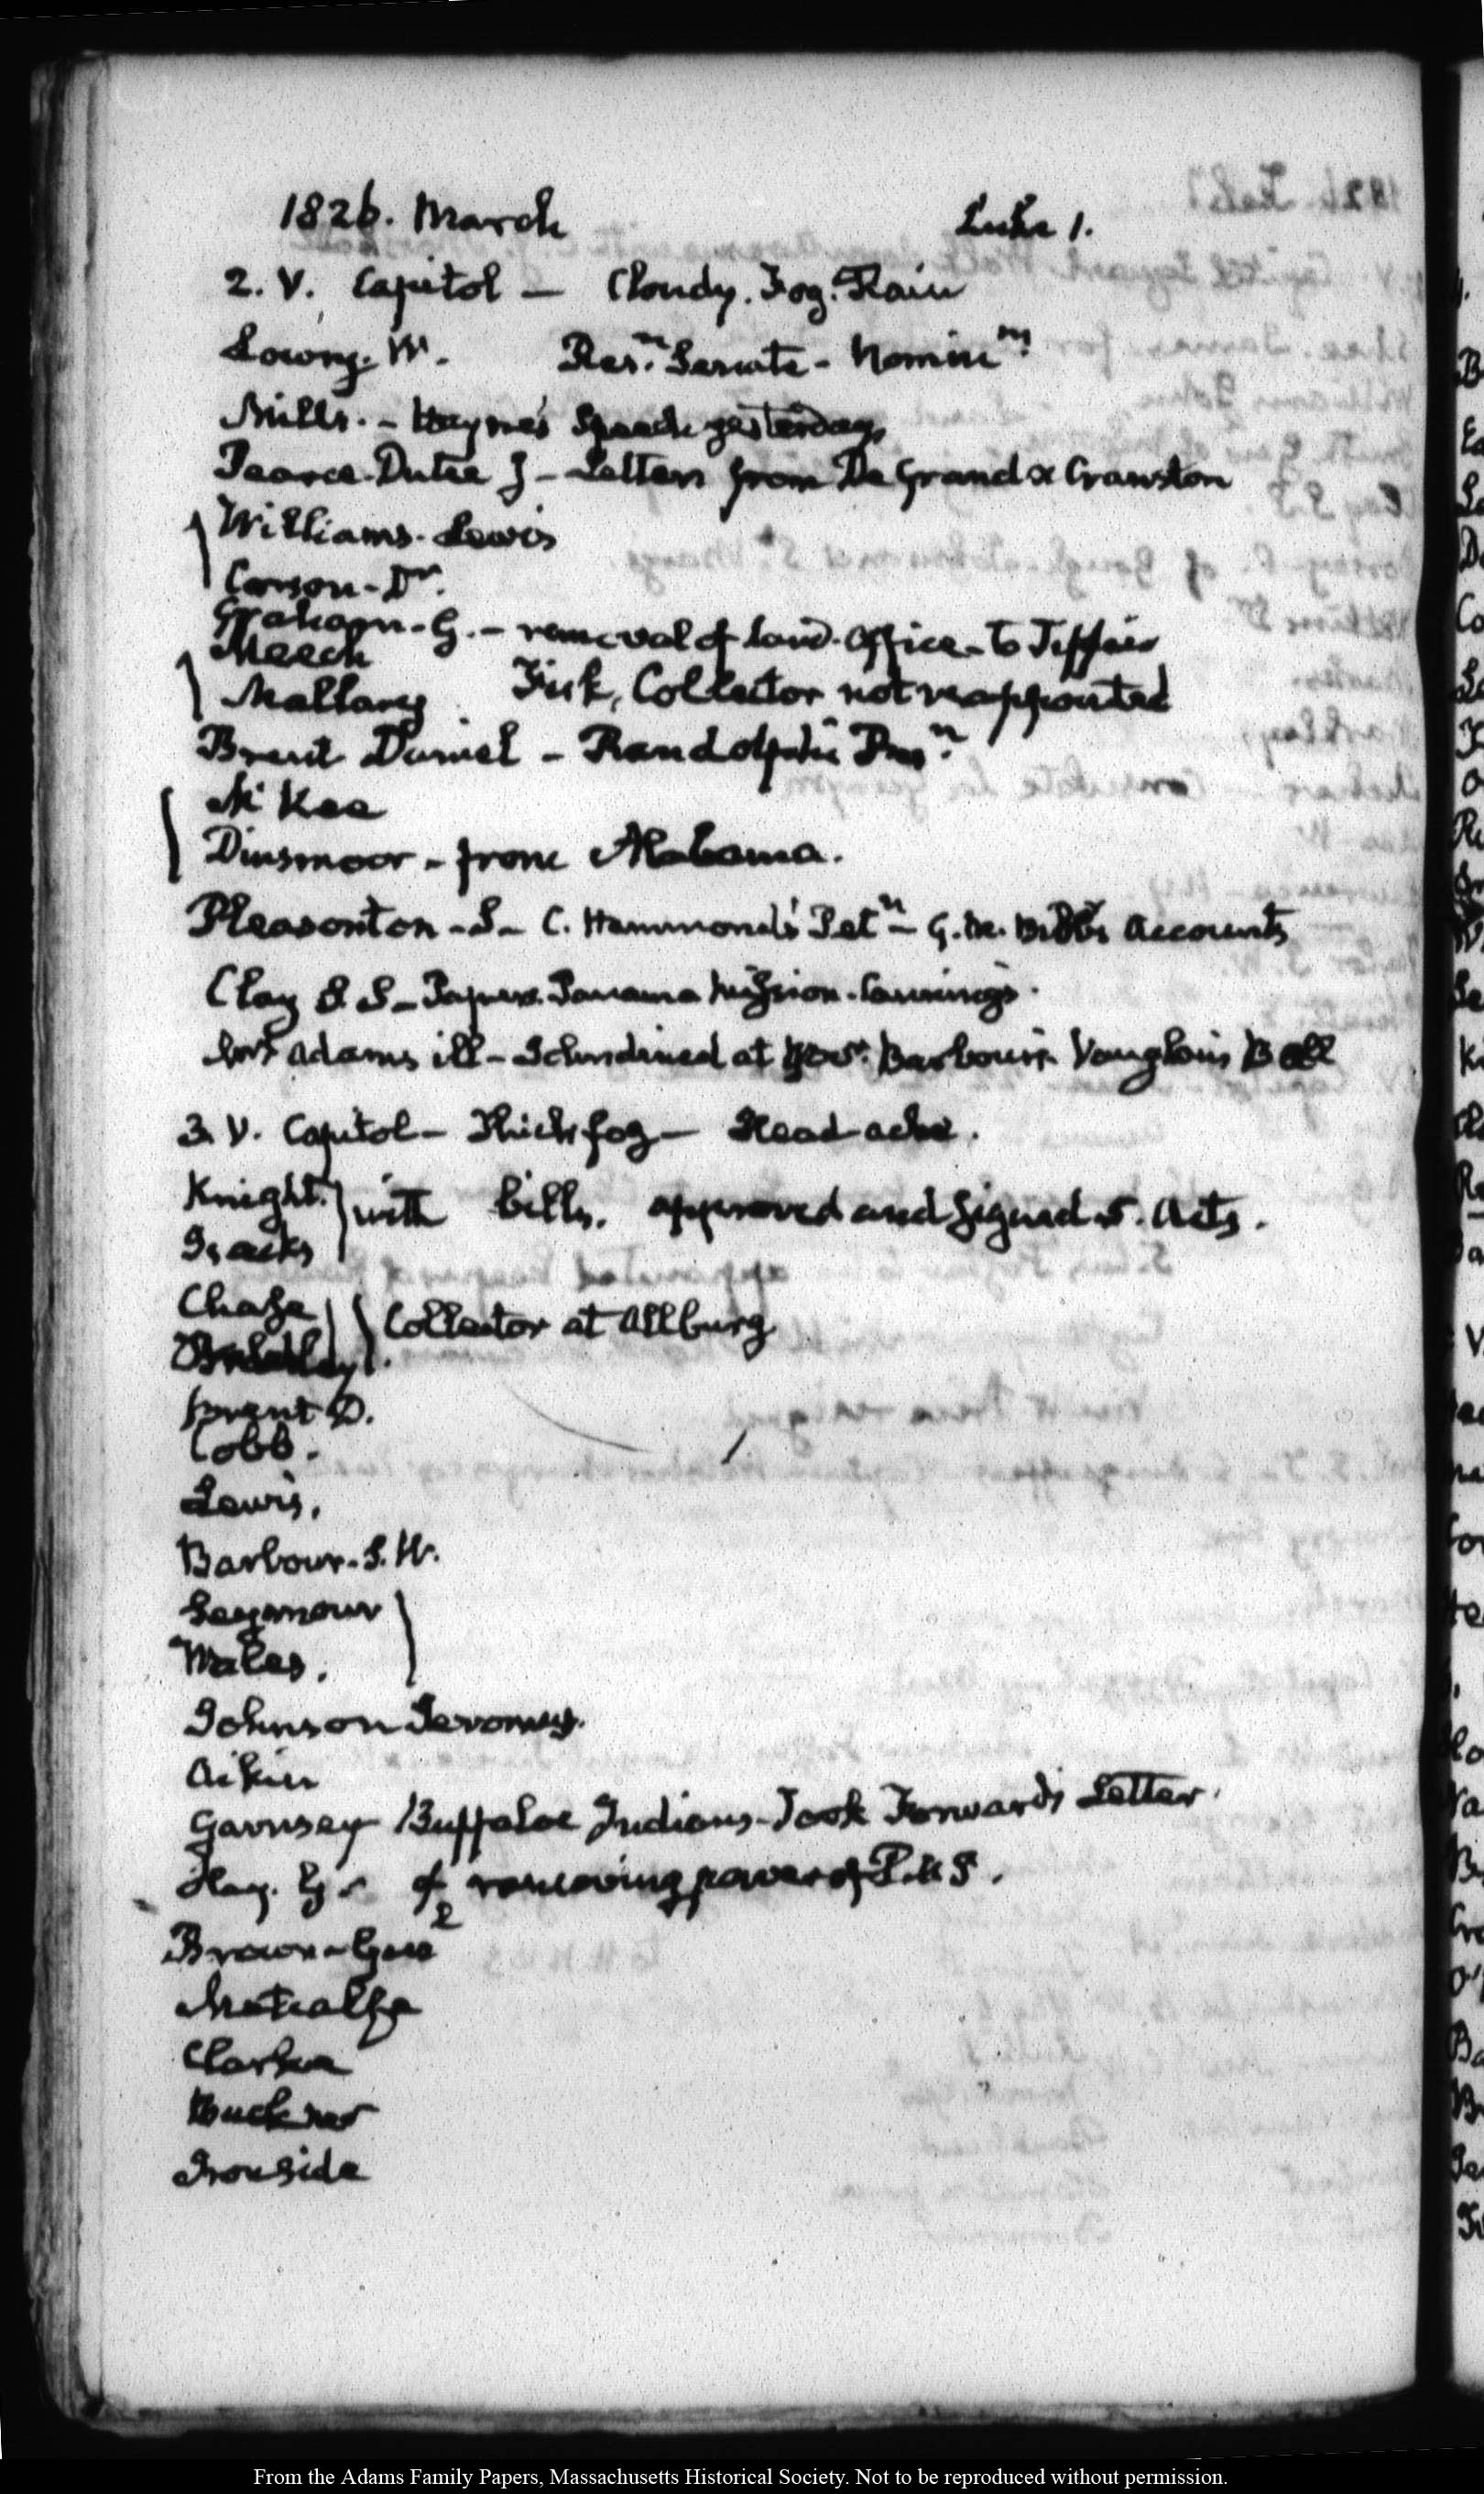 1826. March Luke 1.
2. V. Capitol — Cloudy. Fog. Rain
Lowry. W. Resn. Senate - Nominns
Mills. - Hayne's Speech yesterday
Pearce. Dutee J - Letters from De Grand & Cranston
Williams. Lewis
Carson - Dr.
Graham. G. - removal of land. office - to Tiffin
Meech
Mallary Fisk, Collector not reappointed
Brent Daniel - Randolph's
McKee
Dinsmoor - from Alabama.
Pleasonton - S - C. Hammond's Petn - G. M. Accounts
Clay S. S - Papers. Panama Mission. Cannings.
Mrs Adams ill - Johndined at Govr. Barbour's. Vaughan's Ball
3. V. Capitol — Thick fog — Head-ache.
Knight with bills. approved and signed 5. Acts.
Chase Collector at Allburg
Brent D.
Cobb.
Lewis.
Barbour. S. W.
Seymour
Wales.
Johnson Jeromus.
Aikin
Garnsey Buffaloe Indians - Took Forward's Letter.
Hay. G. of removing power of P. U S.
Brown - Genl
Metcalfe
Clarke
Buckner
Ironside
From the Adams Family Papers, Massachusetts Historical Society. Not to be reproduced without permission.